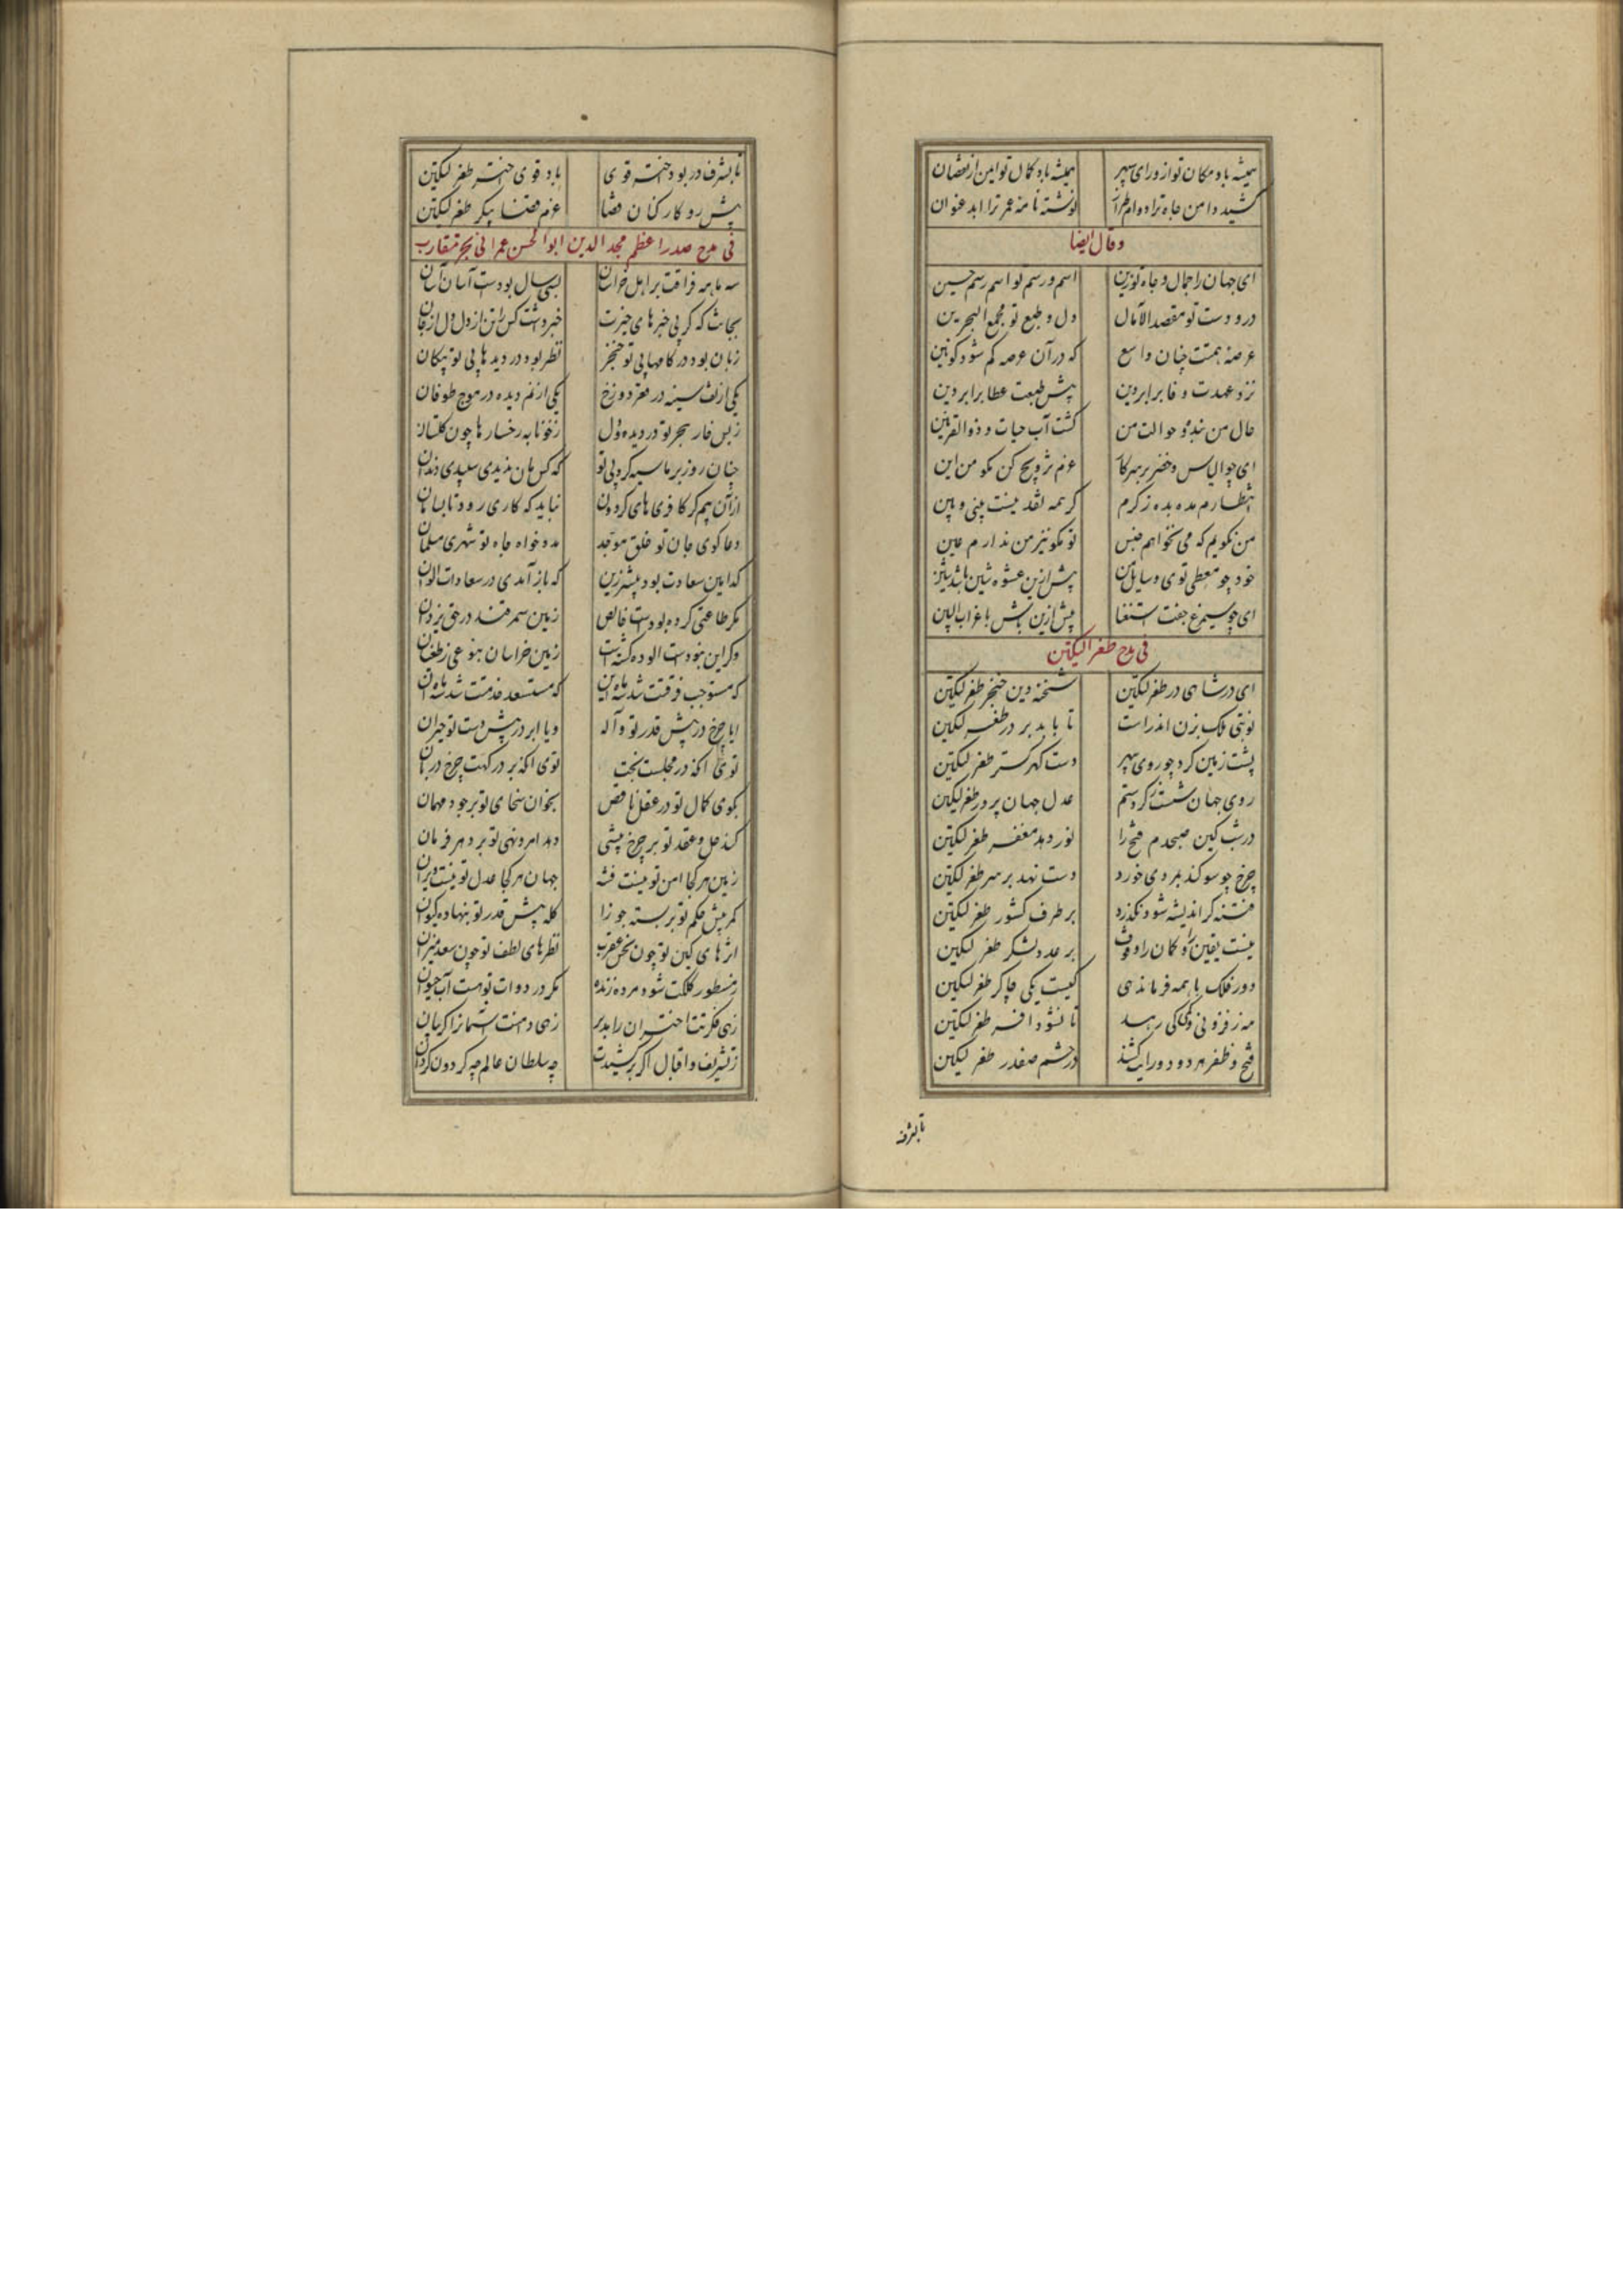 همیشه باد مکان تو از ورای سپهر همیشه باد کمال تو ایمن از نقصان
کشیده دامن جاه ترا دوام طراز نوشته نامه عمر ترا ابد عنوان
وقال ایضا
ای جهان را جمال و جاه تو زین اسم و رسم تو اسم و رسم حسین
در و دست تو مقصد الآمال دل و طبع تو مجمع البحرین
عرصه همتت چنان واسع که در آن عرصه کم شود کونین
نزد عهدت وفا برابر دین پیش طبعت عطا برابر دین
حال من بنده و حوالت من کشت آب حیات و ذوالقرنین
ای چو الیاس و خضر بر سر کار عزم ترویج کن مکو من این
انتظارم مده بده ز کرم کر همه نقد نیست بینی و بین
من نکویم که می نخواهم جنس تو مکو نیز من ندارم عین
خود چو معطی توی و سایل من پیش ازین عشوه شین باشد شین
ای چو سیمرغ جفت استغنا پیش ازین باش با غراب البین
فی مدح طغرالیکتین
ای در شاهی در طغرلتکین شحنه دین خنجر طغرلتکین
نوبتی ملک بزن اندر است تا باید بر در طغرلتکین
پشت زمین کرد چو روی سپهر دست کهر کستر طغرلتکین
روی جهان شست ز کرد ستم عدل جهان پرور طغرلتکین
در شب کین صبحدم فتح را نور دهد مغفر طغرلتکین
چرخ چو سوکند بمردی خورد دست نهد بر سر طغرلتکین
فتنه کر اندیشه شود نکذرد بر طرف کشور طغرلتکین
نیست یقین را و کمان را وقوف بر عدد لشکر طغرلتکین
دور فلک با همه فرماندهی کیست یکی چاکر طغرلتکین
مه ز فزونی و کمی کی رسد تا نشود افسر طغرلتکین
فتح و ظفر هر دو دو رایت کشند در حشم صفدر طغرلتکین
تا بشرف
تا بشرف در بود اختر قوی باد قوی اختر طغرلتکین
پیش رو کارکنان قضا عزم قضا پیکر طغرلتکین
فی مدح صدر اعظم مجد الدین ابو الحسن عمرانی بحر متقارب
سه ماهه فراقت بر اهل خراسان بسی سال بودست آسان آسان
بجانت که کر بی خبر های خیرت خبر داشت کس را تن از دل دل از جان
زبان بود در کامها بی تو خنجر نظر بود در دیدها بی تو پیکان
یکی از تف سینه در قعر دوزخ یکی از نم دیده در موج طوفان
ز بس خار هجر تو در دیده و دل ز خونابه رخسارها چون کلستان
چنان روز بر ما سیه کرد بی تو که کس مان ندیدی سپیدی دندان
از آن بیم کز کافری های کردون نباید که کاری رود نابسامان
دعا کوی جان تو خلق موحد مدد خواه جاه تو شهری مسلمان
کدامین سعادت بود بیشتر زین که باز آمدی در سعادات الوان
مکر طاعتی کرده بودست خالص زمین سمرقند در حق یزدان
وکر این نبودست آلوده کشتست زمین خراسان بنوعی ز طغیان
که مستوجب فرقتت شد سه ماه این که مستسعد خدمتت شد سه ماه آن
ایا چرخ در پیش قدر تو واله و یا ابر در پیش دست تو حیران
توی آنکه در مجلست بخت توی آنکه بر درکهت چرخ دربان
بکوی کمال تو در عقل ناقص بخوان سخای تو بر جود مهمان
کند حل و عقد تو بر چرخ پیشی دهد امر و نهی تو بر دهر فرمان
زمین هر کجا امن تو نیست فتنه جهان هر کجا عدل تو نیست ویران
کمر پیش حکم تو بربسته جوزا کله پیش قدر تو بنهاده کیوان
اثرهای کین تو چون نحس عقرب نظرهای لطف تو چون سعد میزان
ز سطور کلکت شود مرده زنده مکر در دوات تو هست آب حیوان
زهی فکرتت اختران را مدبر زهی دامنت آسمان را کریبان
ز تشریف و اقبال اکر برکشیدت چه سلطان عالم چه کردون کردان